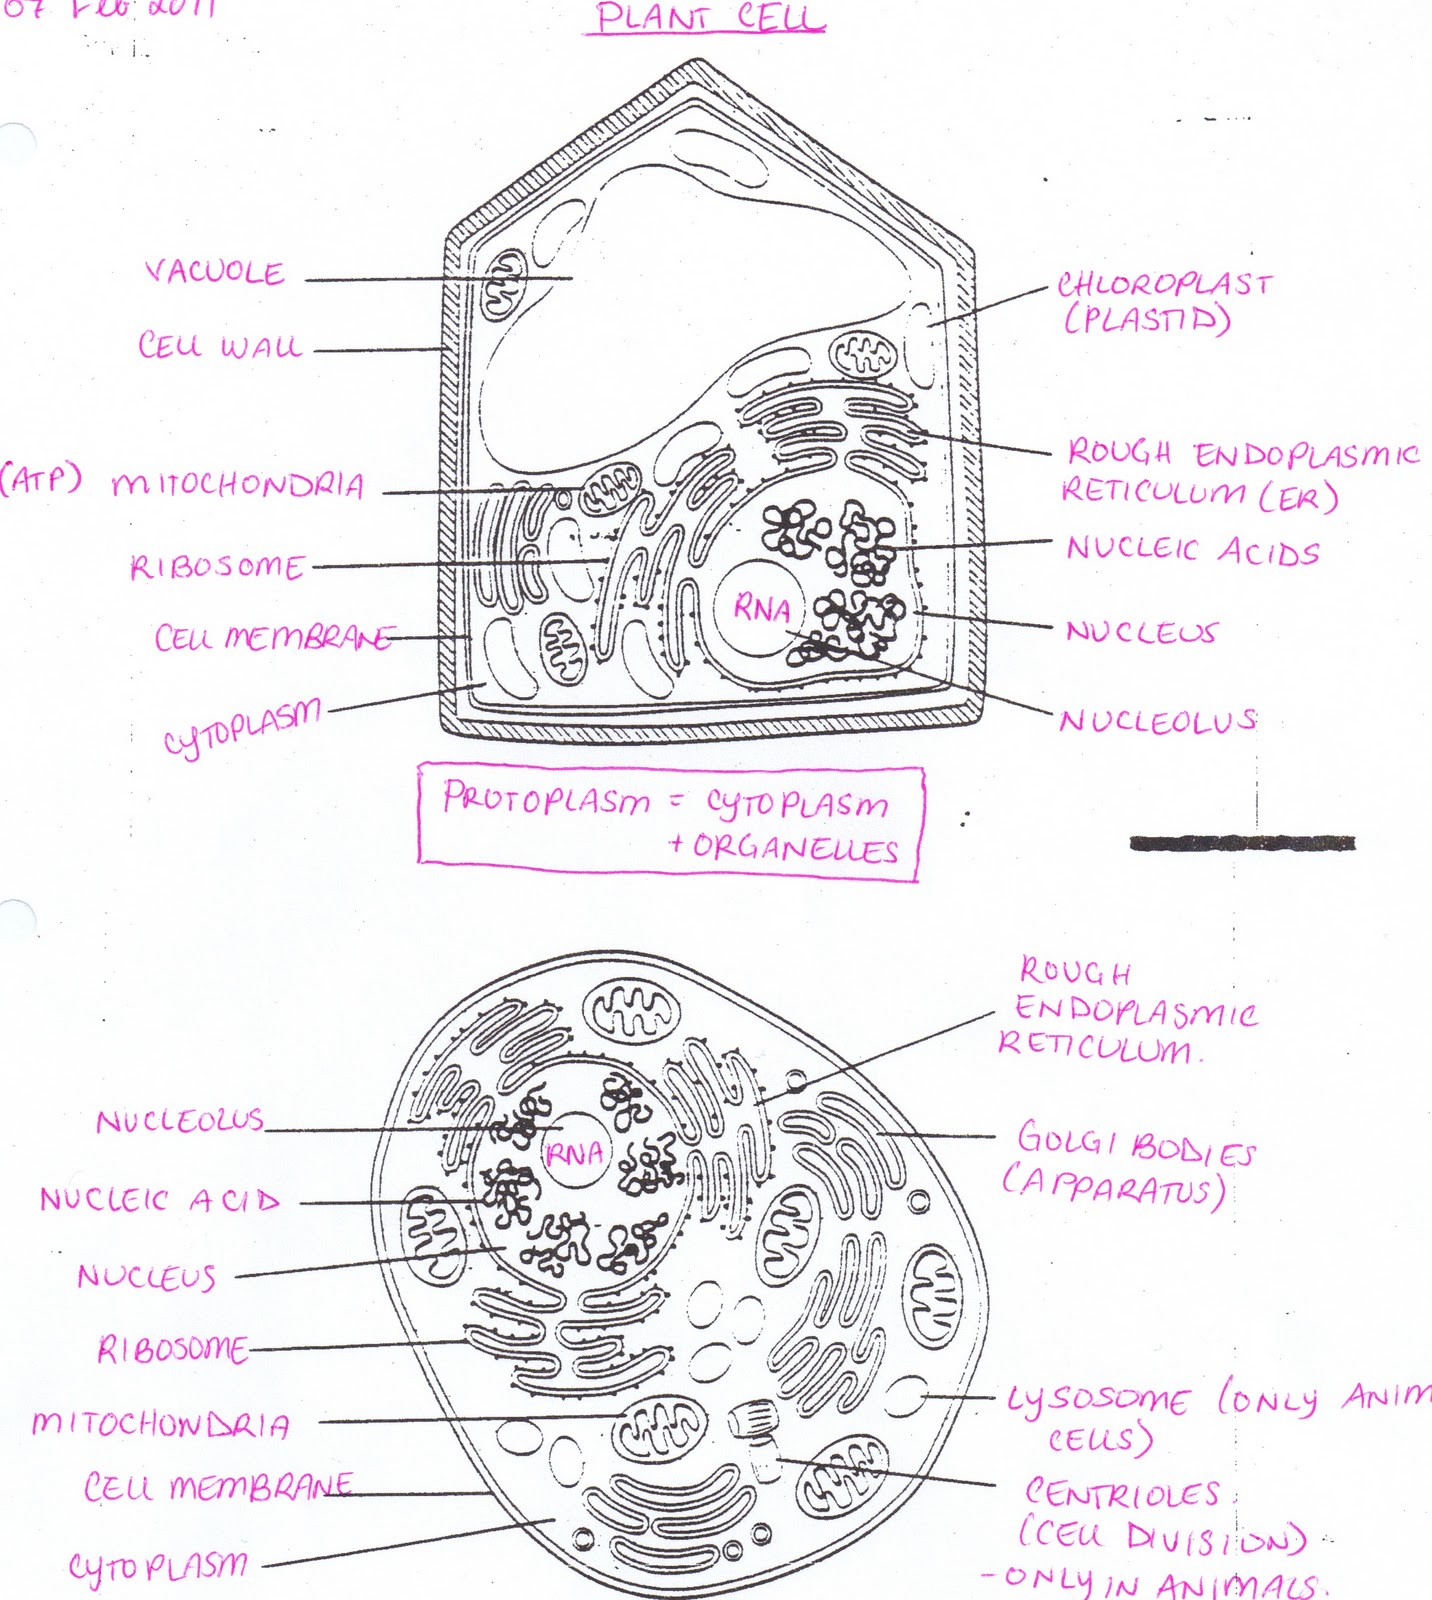 07 Feb 2011
PLANT CELL
VACUOLE
CELL WALL
(ATP) MITOCHONDRIA
RIBOSOME
CELL MEMBRANE
CYTOPLASM
CHLOROPLAST
(PLASTID)
ROUGH ENDOPLASMIC
RETICULUM (ER)
NUCLEIC ACIDS
NUCLEUS
NUCLEOLUS
RNA
PROTOPLASM = CYTOPLASM
+ ORGANELLES
NUCLEOLUS
NUCLEIC ACID
NUCLEUS
RIBOSOME
MITOCHONDRIA
CELL MEMBRANE
CYTOPLASM
RNA
ROUGH
ENDOPLASMIC
RETICULUM.
GOLGI BODIES
(APPARATUS)
LYSOSOME (ONLY ANIM
CELLS)
CENTRIOLES
(CELL DIVISION)
-ONLY IN ANIMALS.